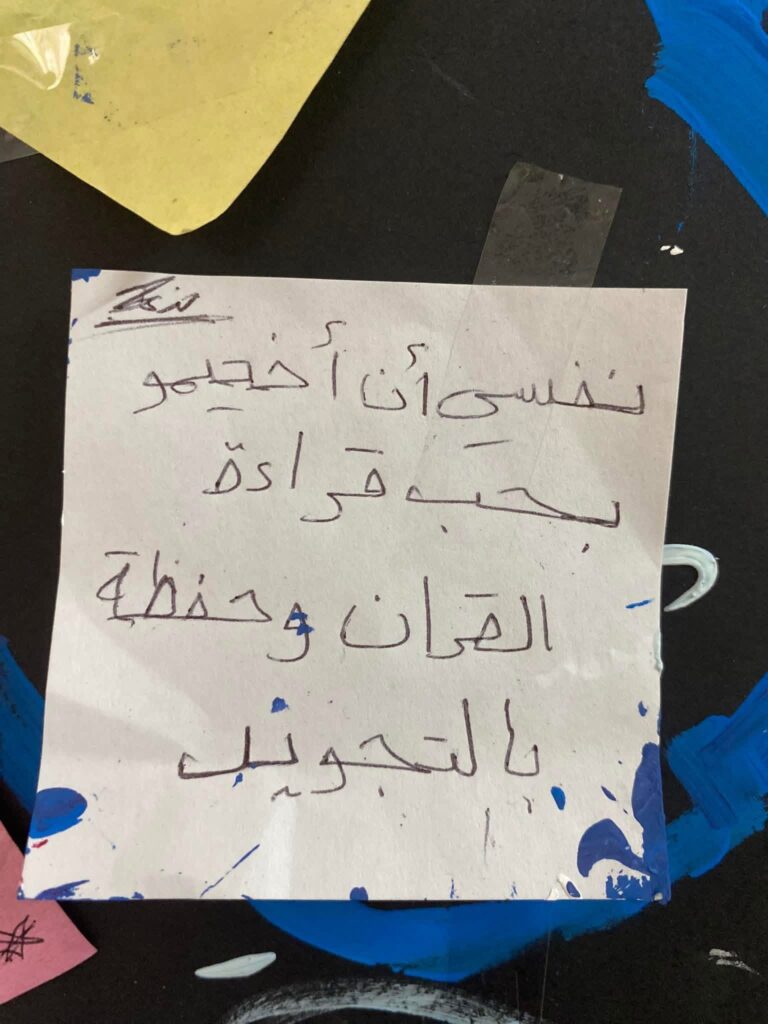 Zein
نفسي أن أختيمو
بحب قراءة
القران وحفظة
بالتجويد